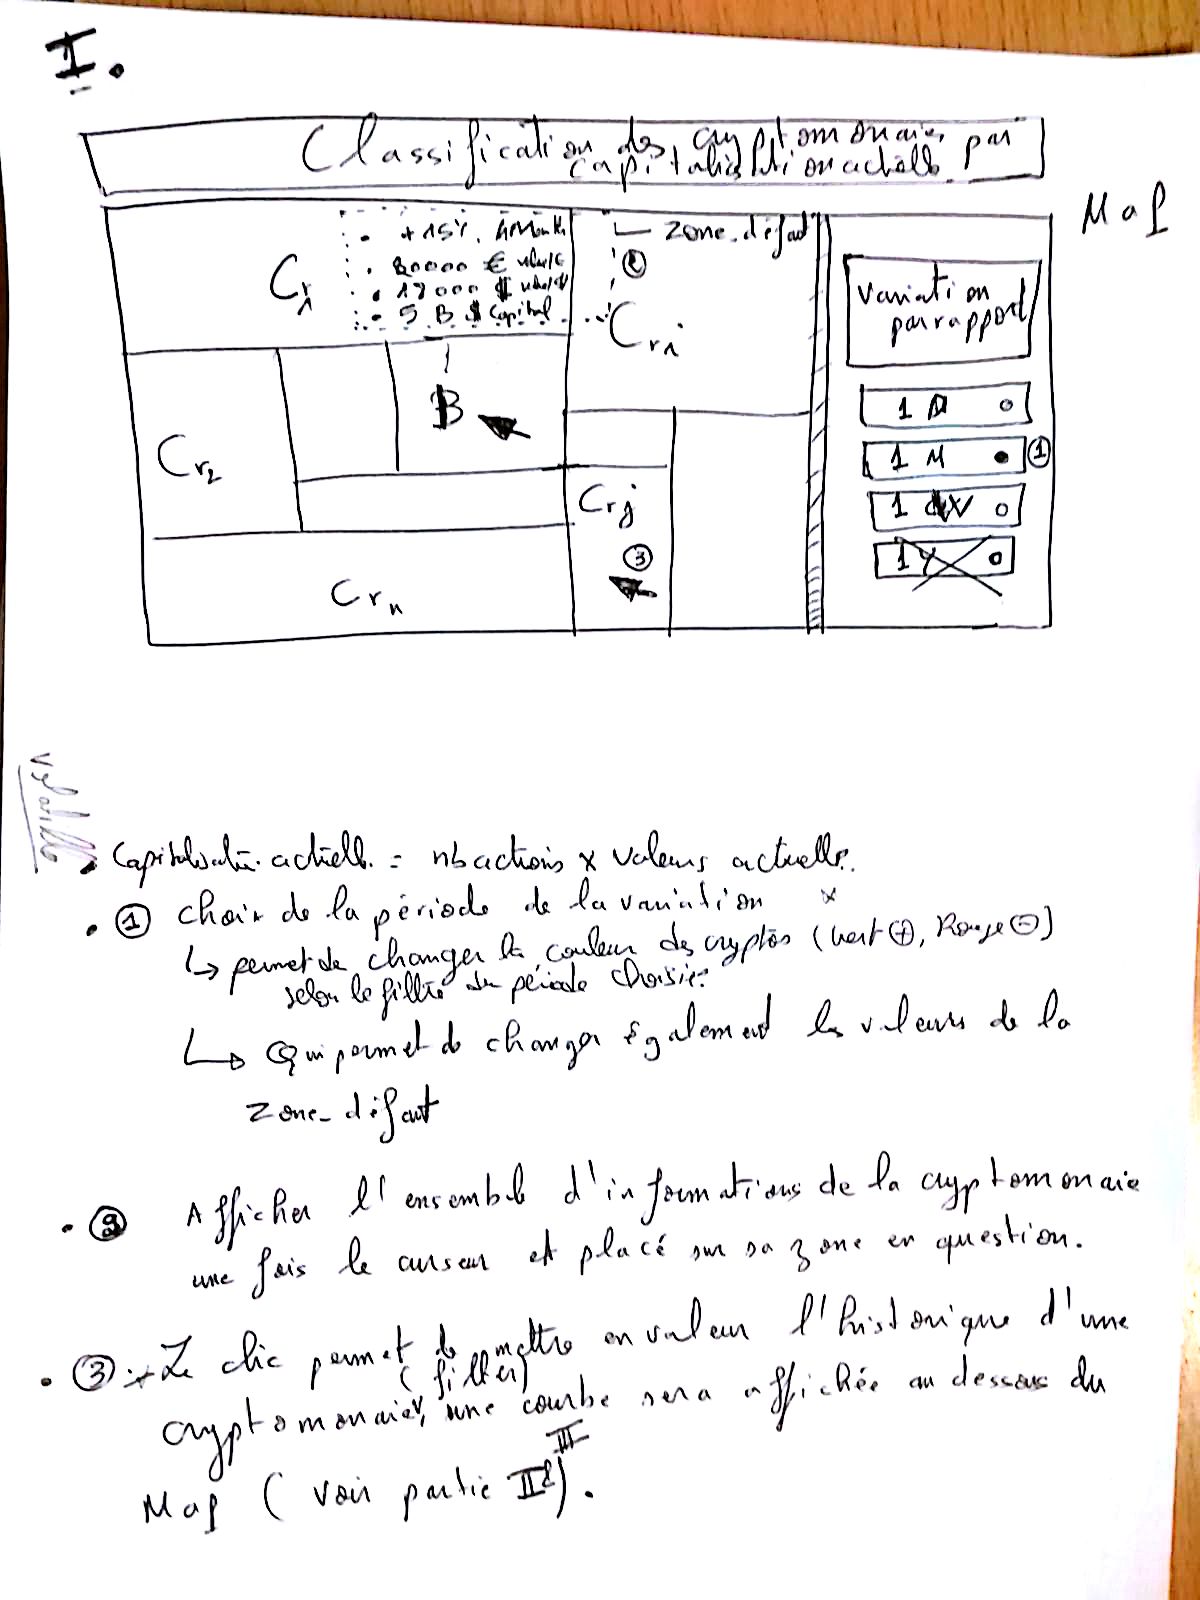 I.
Classification des cryptomonaies par
capitalisation actuelle
Map
+ 15%. 1 Month
20000 € value/€
17000 $ value/$
5 B $ Capital
Cr1
zone_défaut
2
Cri
Variation
par rapport
1 D
1 M
1
1 W
1 Y
B
Cr2
Crj
3
Crn
Capitalisation actuelle = nb actions x valeurs actuelle.
1 choix de la période de la variation x
↳ permet de changer la couleur des cryptos (vert ⊕, Rouge ⊖)
selon le filtre de période choisie.
↳ Qui permet de changer également les valeurs de la
zone_défaut
2 Afficher l'ensemble d'informations de la cryptomonaie
une fois le curseur est placé sur sa zone en question.
3 Le clic permet de mettre en valeur l'historique d'une
(filter)
cryptomonaie, une courbe sera affichée au dessous du
III
Map (voir partie II).